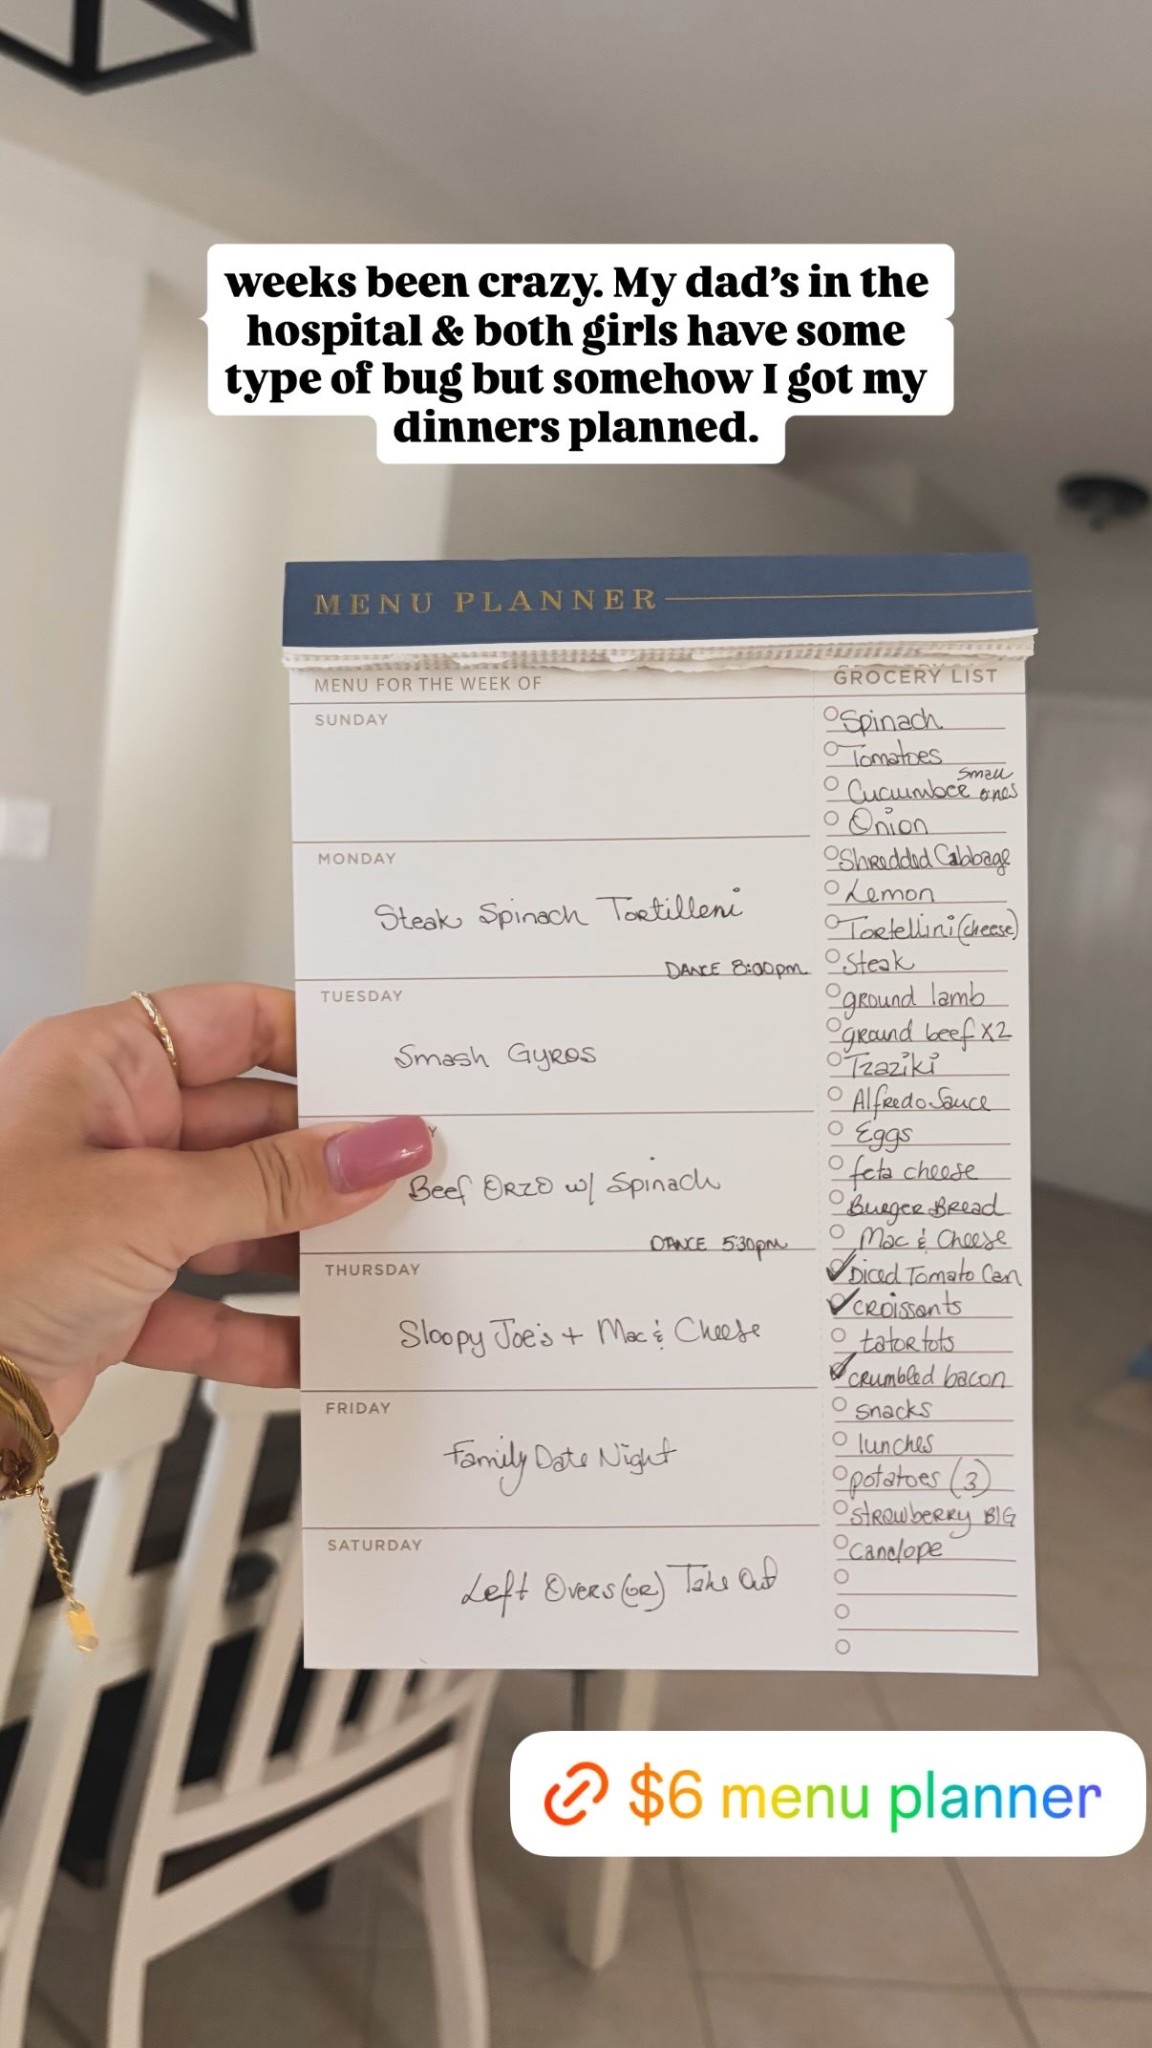 weeks been crazy. My dad's in the
hospital & both girls have some
type of bug but somehow I got my
dinners planned.
MENU PLANNER
MENU FOR THE WEEK OF
SUNDAY
MONDAY
Steak Spinach Tortilleni
DANCE 8:00pm
TUESDAY
Smash Gyros
Y
Beef Orzo w/ Spinach
DANCE 5:30pm
THURSDAY
Sloopy Joe's + Mac & Cheese
FRIDAY
Family Date Night
SATURDAY
Left Overs (or) Take Out
GROCERY LIST
Spinach
Tomatoes
Cucumber small ones
Onion
Shredded Cabbage
Lemon
Tortellini (cheese)
Steak
ground lamb
ground beef X2
Tzaziki
Alfredo Sauce
Eggs
feta cheese
Burger Bread
Mac & Cheese
Diced Tomato Can
croissants
tatortots
crumbled bacon
snacks
lunches
potatoes (3)
strawberry BIG
canelope
$6 menu planner